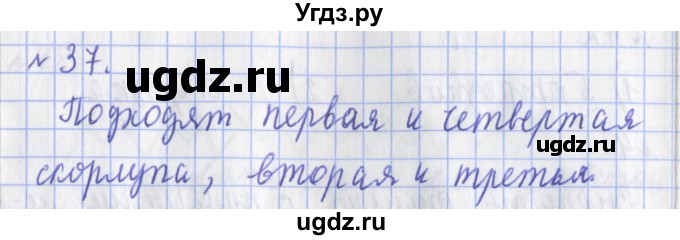 Угдз.ру
№ 37.
ugdz.ru
Подходят первая и четвертая
скорлупа, вторая и третья
ugdz.ru
ugdz.ru